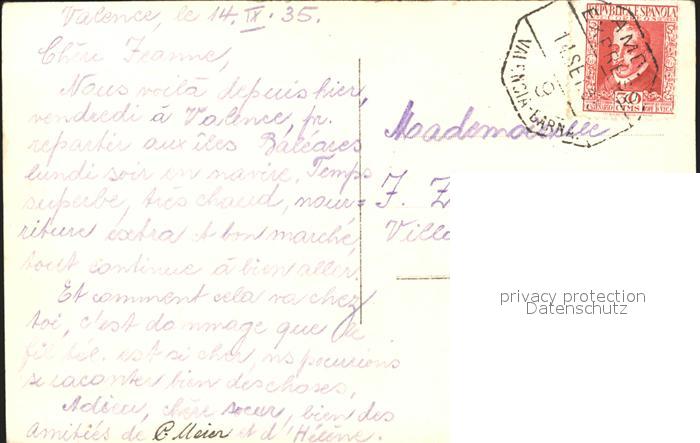 Valence, le 14. IX. 35.
Chère Jeanne,
Nous voilà depuis hier,
vendredi à Valence, pr.
repartir aux îles Baléares
lundi soir en navire, Temps
superbe, très chaud, nour=
riture extra et bon marché,
tout continue à bien aller
Et comment cela va chez
toi, c'est dommage que le
fil tél. est si cher, ns pourrions
se raconter bien des choses,
Adieu, chère soeur, bien des
amitiés de C. Meier et d'Hélène.
Maademoiselle
J. Z
Villa
REPUBLICA ESPAÑOLA
30
CTMS
14 SEP
VALENCIA-BARNA
privacy protection
Datenschutz